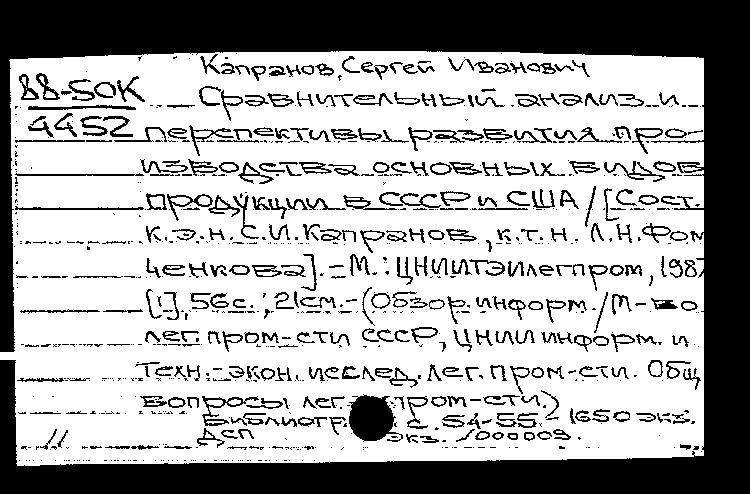 Капранов, Сергей Иванович
88-50К
4452
Сравнительный анализ и
перспективы развития про-
изводства основных видов
продукции в СССР и США / [Сост.
к.э.н. С.И. Капранов, к.т.н. Л.Н. Фом
ченкова]. - М. : ЦНИИТЭИлегпром, 1987
[1], 56 с. ; 21 см. - (Обзор. информ. / М-во
лег. пром-сти СССР, ЦНИИ информ. и
техн.-экон. исслед. лег. пром-сти. Общ
вопросы лег. пром-сти.)
Библиогр. с. 54-55 - 1650 экз.
ДСП экз. 1000009.
11